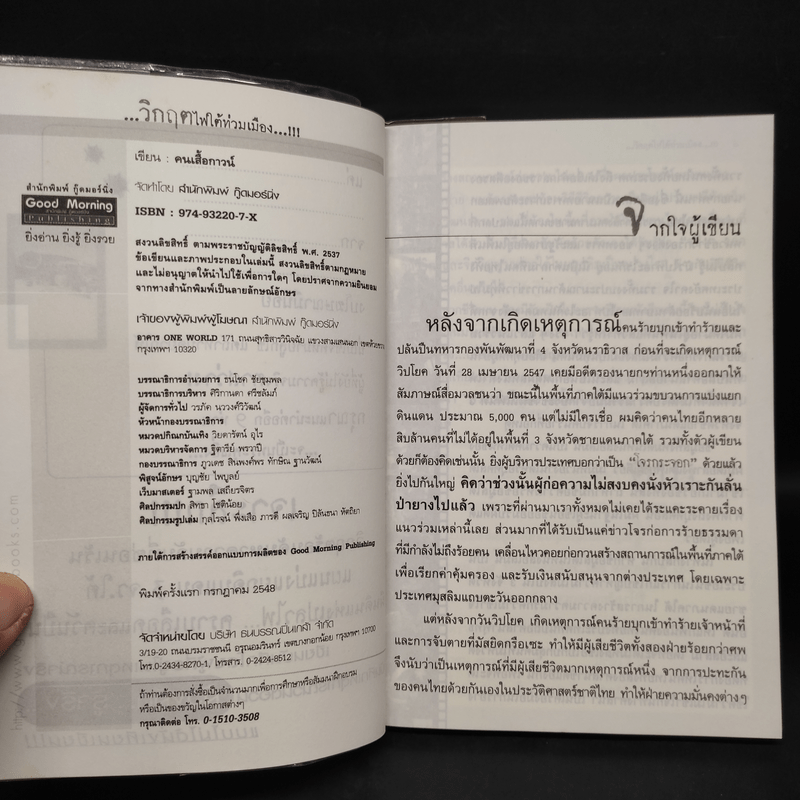 ...วิกฤตไฟใต้ท่วมเมือง...!!!
สำนักพิมพ์ กู๊ดมอร์นิ่ง
Good Morning
Publishing
ยิ่งอ่าน ยิ่งรู้ ยิ่งรวย
เขียน : คนเสื้อกาวน์
จัดทำโดย สำนักพิมพ์ กู๊ดมอร์นิ่ง
ISBN : 974-93220-7-X
สงวนลิขสิทธิ์ ตามพระราชบัญญัติลิขสิทธิ์ พ.ศ. 2537
ข้อเขียนและภาพประกอบในเล่มนี้ สงวนลิขสิทธิ์ตามกฎหมาย
และไม่อนุญาตให้นำไปใช้เพื่อการใดๆ โดยปราศจากความยินยอม
จากทางสำนักพิมพ์เป็นลายลักษณ์อักษร
เจ้าของผู้พิมพ์ผู้โฆษณา สำนักพิมพ์ กู๊ดมอร์นิ่ง
อาคาร ONE WORLD 171 ถนนสุทธิสารวินิจฉัย แขวงสามเสนนอก เขตห้วยขวาง
กรุงเทพฯ 10320
บรรณาธิการอำนวยการ ธนโชค ชัยชุมพล
บรรณาธิการบริหาร ศิริกานดา ศรีชลัมภ์
ผู้จัดการทั่วไป วรภัค นววงศ์วิวัฒน์
หัวหน้ากองบรรณาธิการ
หมวดปกิณกบันเทิง วิยดารัตน์ อุไร
หมวดบริหารจัดการ ฐิตารีย์ พรวาปี
กองบรรณาธิการ ภูวเดช สินพงศ์พร ทักษิณ ฐานวัฒน์
พิสูจน์อักษร บุญชัย ไพบูลย์
เว็บมาสเตอร์ ฐามพล เสถียรจิตร
ศิลปกรรมปก สิทธา โชติน้อย
ศิลปกรรมรูปเล่ม กุลโรจน์ พึ่งเสือ ภารดี ผลเจริญ ปิลันธนา หัตถิยา
ภายใต้การสร้างสรรค์ออกแบบการผลิตของ Good Morning Publishing
พิมพ์ครั้งแรก กรกฎาคม 2548
จัดจำหน่ายโดย บริษัท ธนบรรณปิ่นเกล้า จำกัด
3/19-20 ถนนบรมราชชนนี อรุณอมรินทร์ เขตบางกอกน้อย กรุงเทพฯ 10700
โทร.0-2434-8270-1, โทรสาร, 0-2424-8512
ถ้าท่านต้องการสั่งซื้อเป็นจำนวนมากเพื่อการศึกษาหรือสัมมนาฝึกอบรม
หรือเป็นของขวัญในโอกาสต่างๆ
กรุณาติดต่อ โทร. 0-1510-3508
จากใจผู้เขียน
หลังจากเกิดเหตุการณ์คนร้ายบุกเข้าทำร้ายและ
ปล้นปืนทหารกองพันพัฒนาที่ 4 จังหวัดนราธิวาส ก่อนที่จะเกิดเหตุการณ์
วิปโยค วันที่ 28 เมษายน 2547 เคยมีอดีตรองนายกฯท่านหนึ่งออกมาให้
สัมภาษณ์สื่อมวลชนว่า ขณะนี้ในพื้นที่ภาคใต้มีแนวร่วมขบวนการแบ่งแยก
ดินแดน ประมาณ 5,000 คน แต่ไม่มีใครเชื่อ ผมคิดว่าคนไทยอีกหลาย
สิบล้านคนที่ไม่ได้อยู่ในพื้นที่ 3 จังหวัดชายแดนภาคใต้ รวมทั้งตัวผู้เขียน
ด้วยก็ต้องคิดเช่นนั้น ยิ่งผู้บริหารประเทศบอกว่าเป็น "โจรกระจอก" ด้วยแล้ว
ยิ่งไปกันใหญ่ คิดว่าช่วงนั้นผู้ก่อความไม่สงบคงนั่งหัวเราะกันลั่น
ป่ายางไปแล้ว เพราะที่ผ่านมาเราทั้งหมดไม่เคยได้ระแคะระคายเรื่อง
แนวร่วมเหล่านี้เลย ส่วนมากที่ได้รับเป็นแค่ข่าวโจรก่อการร้ายธรรมดา
ที่มีกำลังไม่ถึงร้อยคน เคลื่อนไหวคอยก่อกวนสร้างสถานการณ์ในพื้นที่ภาคใต้
เพื่อเรียกค่าคุ้มครอง และรับเงินสนับสนุนจากต่างประเทศ โดยเฉพาะ
ประเทศมุสลิมแถบตะวันออกกลาง
แต่หลังจากวันวิปโยค เกิดเหตุการณ์คนร้ายบุกเข้าทำร้ายเจ้าหน้าที่
และการจับตายที่มัสยิดกรือเซะ ทำให้มีผู้เสียชีวิตทั้งสองฝ่ายร้อยกว่าศพ
จึงนับว่าเป็นเหตุการณ์ที่มีผู้เสียชีวิตมากเหตุการณ์หนึ่ง จากการปะทะกัน
ของคนไทยด้วยกันเองในประวัติศาสตร์ชาติไทย ทำให้ฝ่ายความมั่นคงต่างๆ